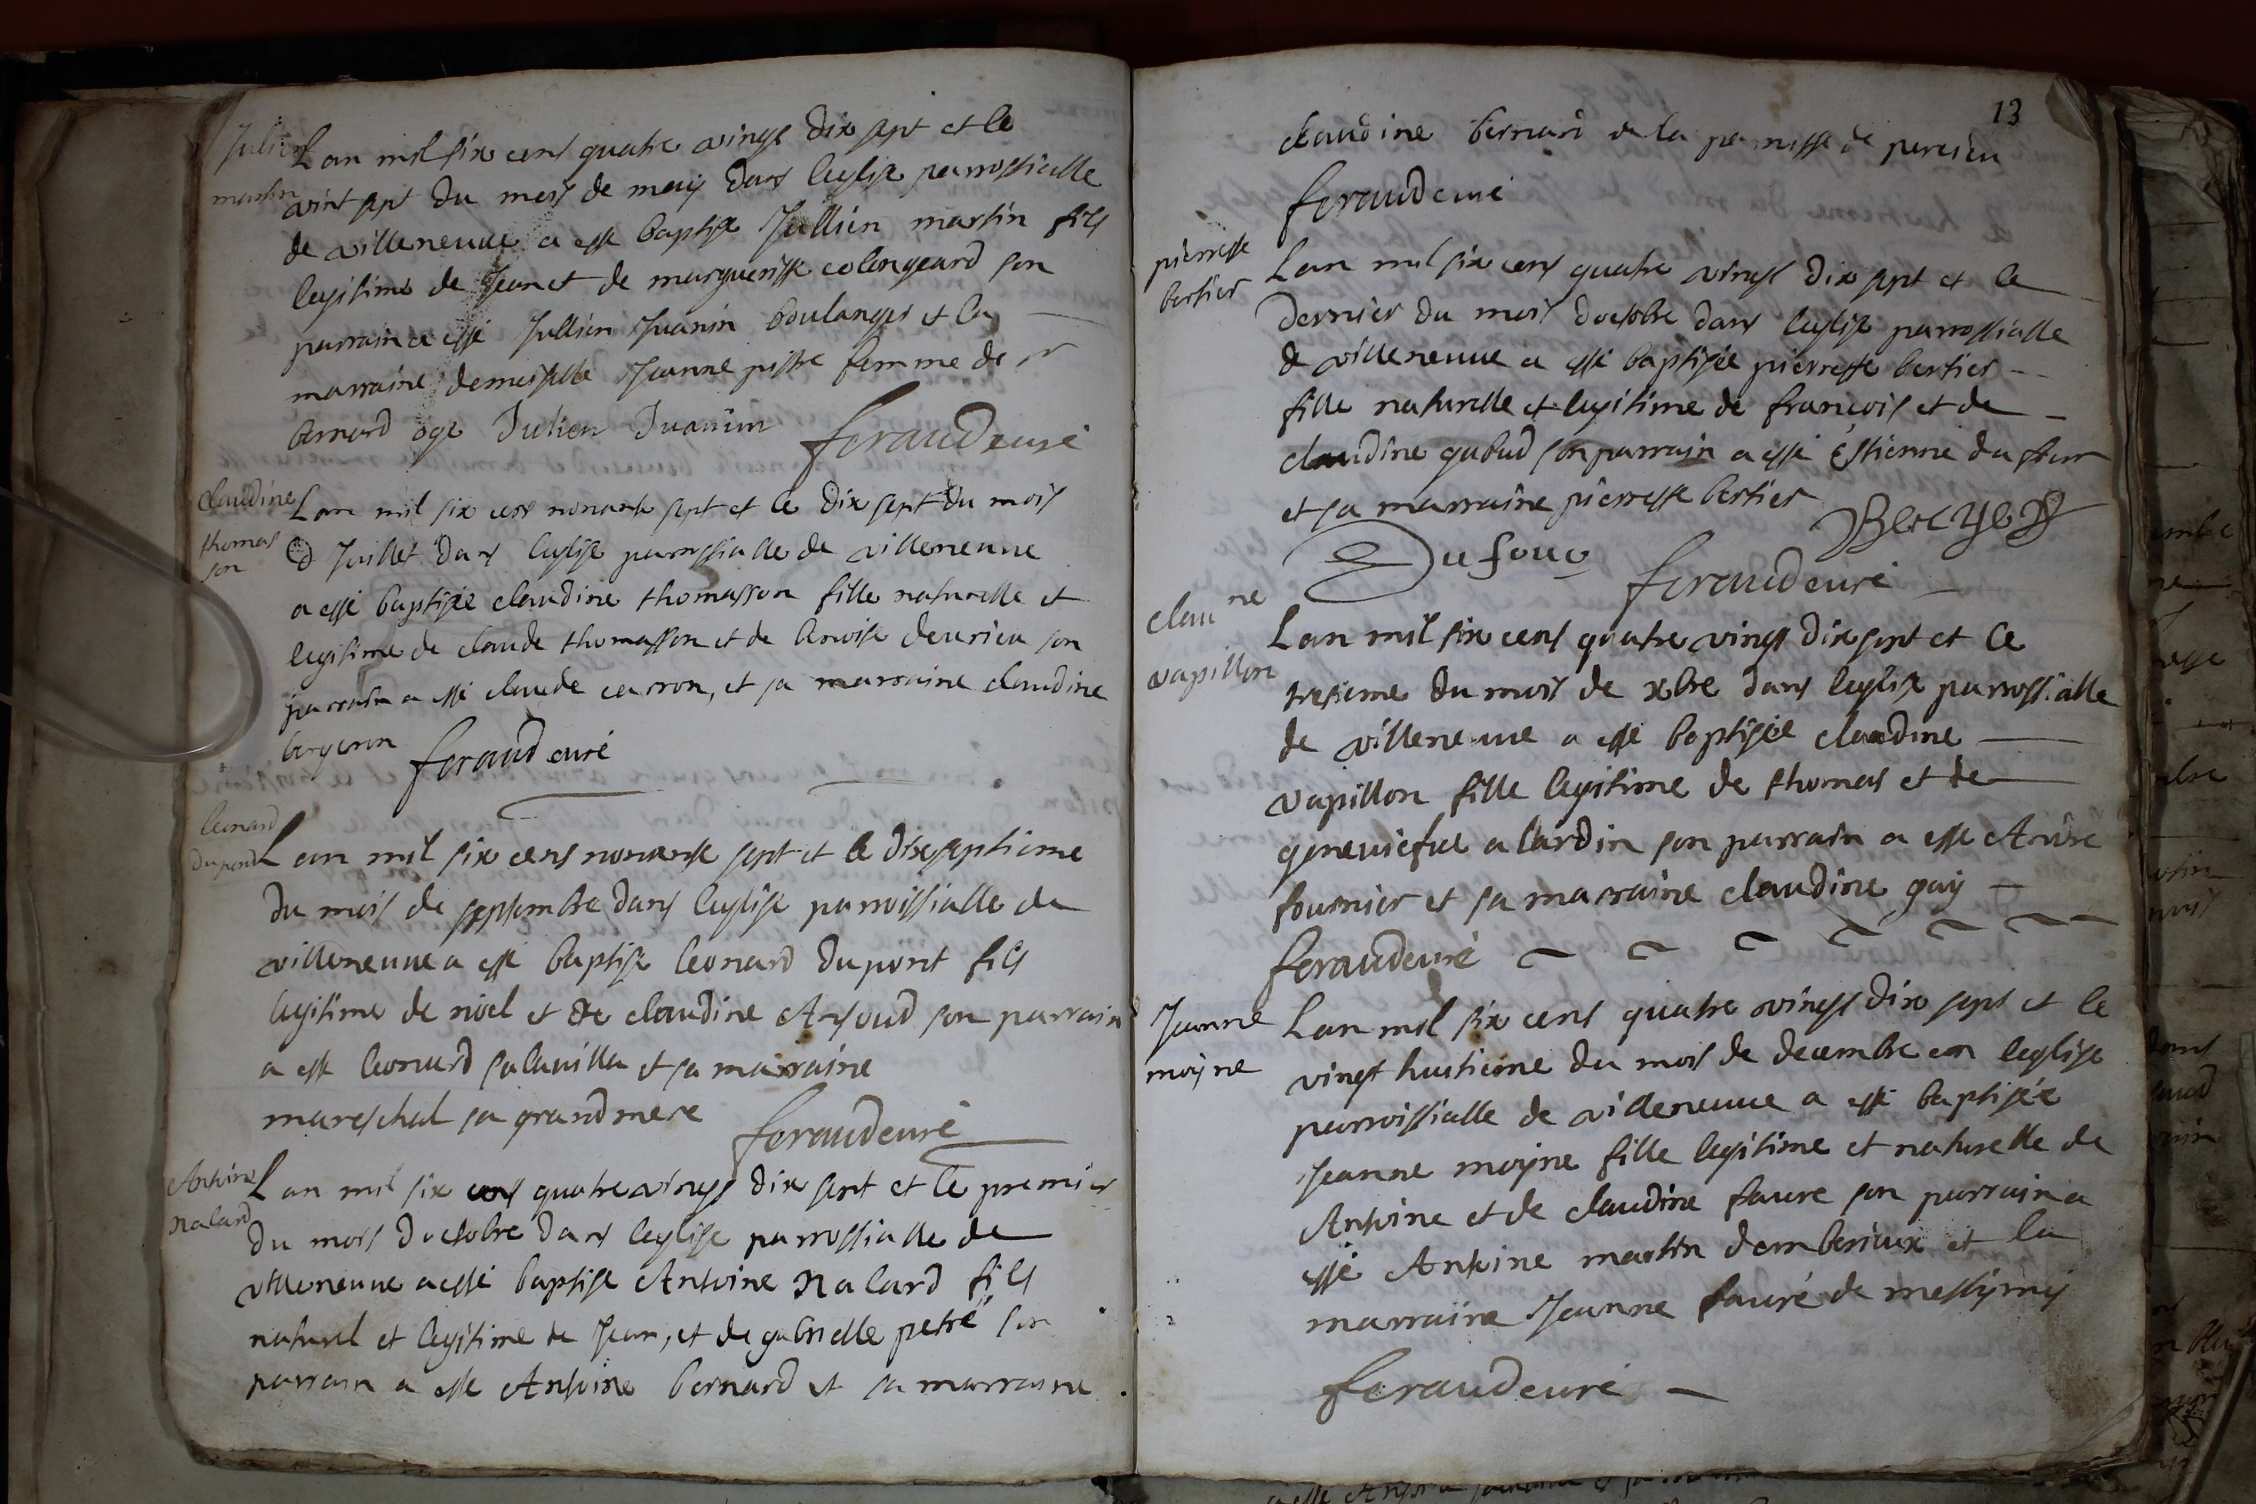 Julien
martin
Lan mil six cens quatre vings dix sept et le
vint sept du mois de may dans leglise parrossialle
de villeneuve a esse baptise Jullien martin fils
legitime de Jean et de marguerisse colongeard son
parrain a esse Jullien Juanin boulanger et la
marraine demoiselle Jeanne pistre femme de sr
bernard oge Julien Juanin feraud curé
claudine
thomas
son
Lan mil six cens nonante sept et le dix sept du mois
d Juillet dans leglise parrossialle de villeneuve
a esse baptisée claudine thomasson fille naturelle et
legitime de claude thomasson et de benoiste deurieu son
parrain a esse claude carron, et sa marraine claudine
bergeron feraud curé
leonard
dupond
Lan mil six cens nonante sept et le dixseptieme
du mois de septembre dans leglise parroissialle de
villeneuve a esse baptise leonard dupont fils
legitime de noel et de claudine Arsoud son parrain
a esse leonard salavilla et sa marraine
mareschal sa grandmere feraud curé
Antoine
nalard
Lan mil six cens quatre vings dix sept et le premier
du mois doctobre dans leglise parrossialle de
villeneuve a esse baptise Antoine nalard fils
naturel et legitime de Jean, et de gabrielle petre son
parrain a esse Antoine bernard et sa marraine
13
claudine bernard de la parroisse de parcieu
feraud curé
pierresse
bertier
Lan mil six cens quatre vings dix sept et le
dernier du mois doctobre dans leglise parrossialle
de villeneuve a esse baptisée pierresse bertier
fille naturelle et legitime de françois et de
claudine gabud son parrain a esse Estienne dufour
et sa marraine pierresse bertier
Dufour feraud curé
clau ne
vapillon
Lan mil six cens quatre vings dix sept et le
tresieme du mois de xbre dans leglise parrossialle
de villeneuve a esse baptisée claudine
vapillon fille legitime de thomas et de
geneviefve alardin son parrain a esse Andre
fournier et sa marraine claudine gay
feraud curé
Jeanne
moyne
Lan mil six cens quatre vings dix sept et le
vingt huitieme du mois de decembre en leglise
parroissialle de villeneuve a esse baptisée
Jeanne moyne fille legitime et naturelle de
Antoine et de claudine faure son parrain a
esse Antoine martin damberieux et la
marraine Jeanne fauré de messimy
feraud curé